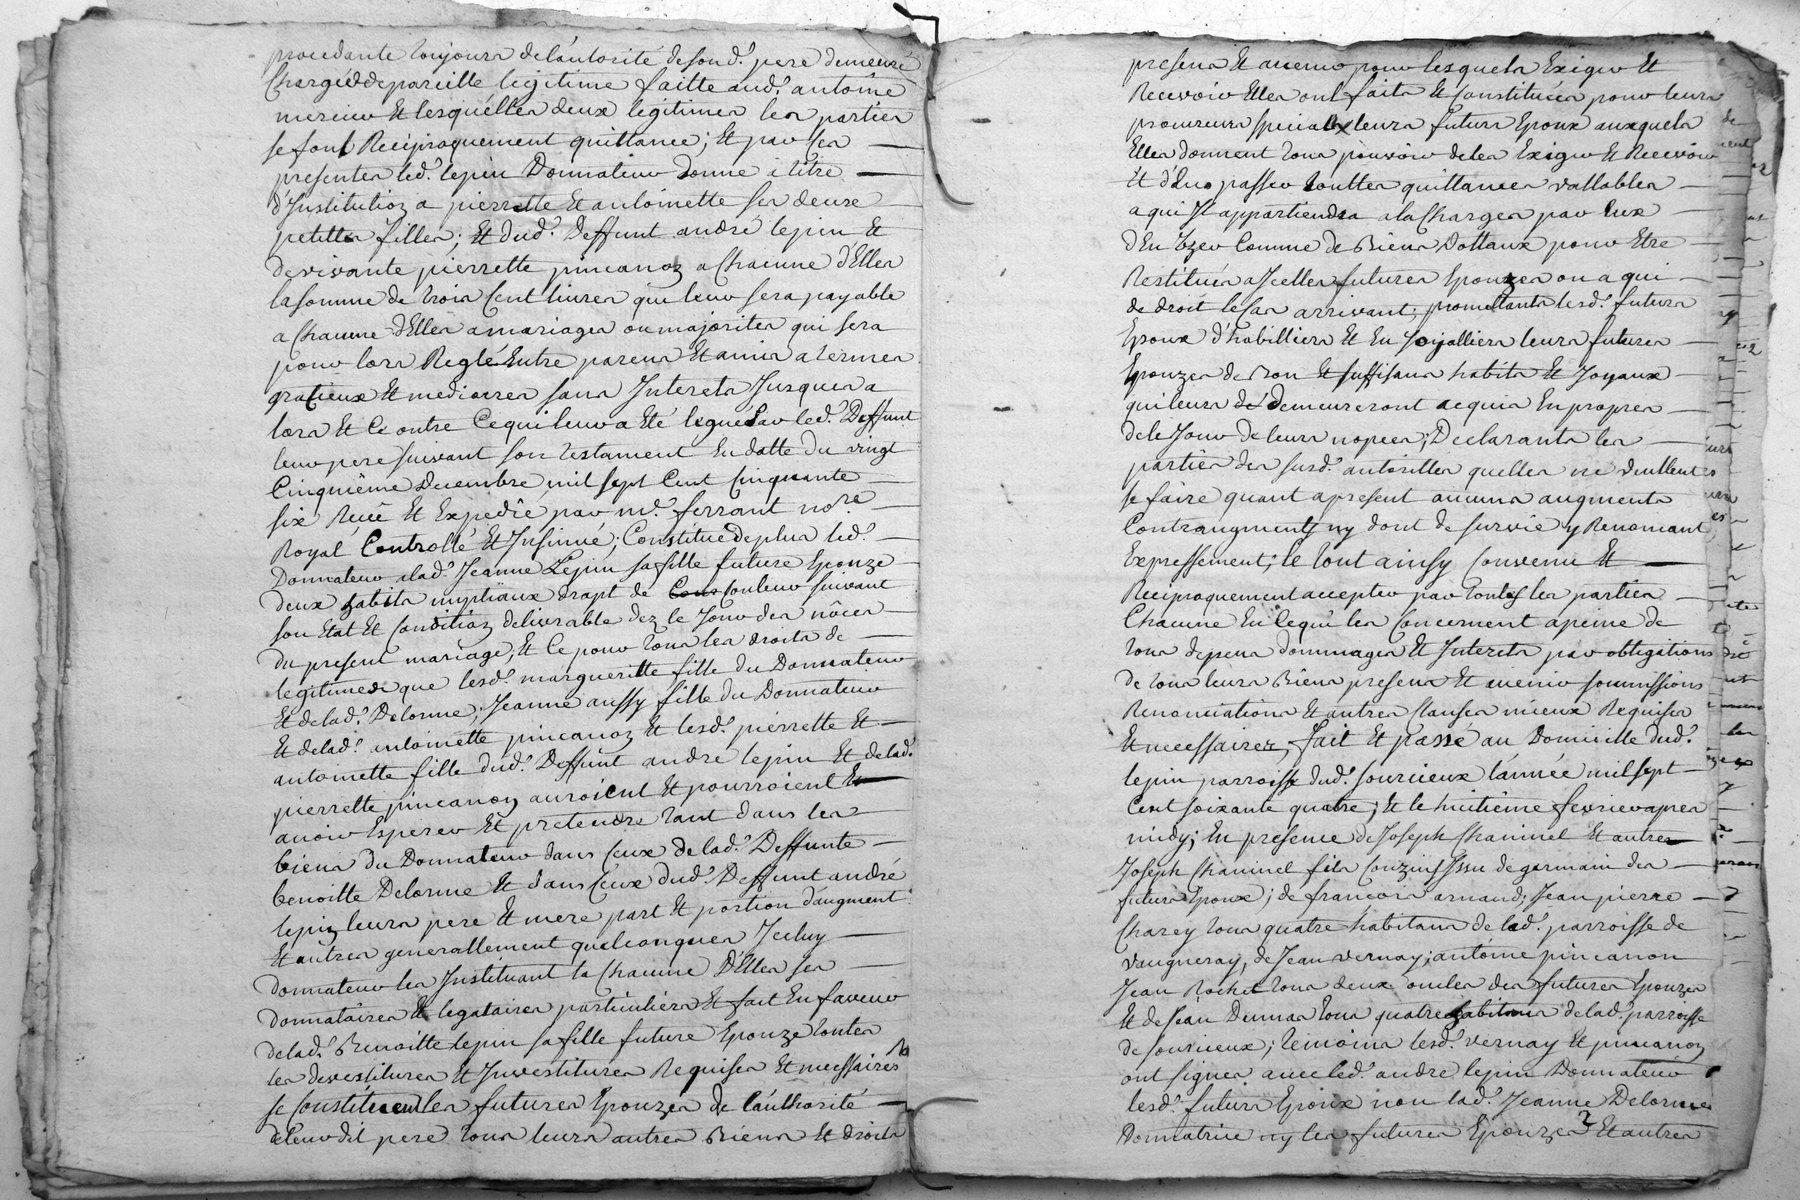 procedante toujours de l'autorité de sond. pere demeuré
Chargé de pareille legitime faitte aud. antoine
mercier Et lesquelles deux legitimes les parties
se font Reciproquement quittance; Et par ses
presentes led. lepin Donnateur donne a titre
d'Institution a pierrette Et antoinette ses deux
petittes filles; Et dud. Deffunt andré lepin Et
de vivante pierrette pincanoz a Chacune d'Elles
la somme de trois Cent livres qui leur sera payable
a Chacune d'Elles a mariages ou majorites qui sera
pour lors Reglé Entre parens Et amis a termes
gratieux Et mediocres sans Interets Jusques a
lors Et Ce outre Ce qui leur a Eté legué par led. Deffunt
leur pere suivant son testament En datte du vingt
Cinquième Decembre mil sept Cent Cinquante
six Reçu Et Expedié par me. ferrant nore.
Royal Controllé Et Insinué; Constitue de plus led.
Donnateur a lad. Jeanne Lepin sa fille future Epouze
deux habits nuptiaux drapt de Cous Couleur suivant
son Etat Et Condition delivrable dez le Jour des nôces
du present mariage; Et Ce pour tous les droits de
legitimes que lesd. margueritte fille du Donnateur
Et de lad. Delorme; Jeanne aussy fille du Donnateur
Et de lad. antoinette pincanoz Et lesd. pierrette Et
antoinette fille dud. Deffunt andré lepin Et de lad.
pierrette pincanoz auroient Et pourroient Et
avoir Esperer Et pretendre tant dans les
biens du Donnateur dans Ceux de lad. Deffunte
benoitte Delorme Et dans Ceux dud. Deffunt andré
lepin leurs pere Et mere part Et portion d'augment
Et autres generallement quelconques Iceluy
donnateur les Instituant la Chacune D'Elles ses
donnataires Et legataires particuliers Et fait En faveur
de lad. Benoitte lepin sa fille future Epouze toutes
les devestitures Et Investitures Requises Et necessaires
se Constituent les futures Epouzes de l'authorité
de leurdit pere tous leurs autres Biens Et droits
presens Et avenir pour lesquels Exiger Et
Recevoir Elles ont faits Et Constitués pour leurs
procureurs speciaux leurs futurs Epoux auxquels
Elles donnent tous pouvoir de les Exiger Et Recevoir
Et d'En passer touttes quittances vallables
a qui Il appartiendra a la Charges par Eux
d'En Uzer Comme de Biens Dottaux pour Etre
Restitués a Icelles futures Epouzes ou a qui
de droit le Cas arrivant; promettants lesd. futurs
Epoux d'habilliers Et En Joyalliers leurs futures
Epouzes de Bon Et suffisans habits Et Joyaux
qui leurs de demeureront acquis En propres
de le Jour de leurs nopces; Declarants les
parties des susd. autorittes quelles ne veullent
se faire quant apresent aucuns augments
Contraugments ny dont de survie y Renonciant
Expressement; le tout ainsy Convenu Et
Reciproquement accepter par toutes les parties
Chacune En Ce qui les Concernent a peine de
tous depens dommages Et Interets par obligations
de tous leurs Biens presens Et avenir soumissions
Renonciations Et autres Clauses mieux Requises
Et necessaires, fait Et passé au Domicille dud.
lepin parroisse dud. sourcieux l'année mil sept
Cent soixante quatre; Et le huitième fevrier apres
midy; En presence de Joseph Chaninel Et autres
Joseph Chaninel fils Couzin Issu de germain des
futurs Epoux; de francois arnaud; Jean pierre
Charey tous quatre habitans de lad. parroisse de
vaugneray, de Jean vernay; antoine pincanon
Jean Rochet tous deux oncles des futures Epouzes
Et de Jean Dumas tous quatre habitans de lad. parroisse
de sourcieux; temoins lesd. vernay Et pincanoz
ont signes avec led. andré lepin Donnateur
lesd. futurs Epoux non lad. Jeanne Delorme
Donnatrice ny les futures Epouzes Et autres